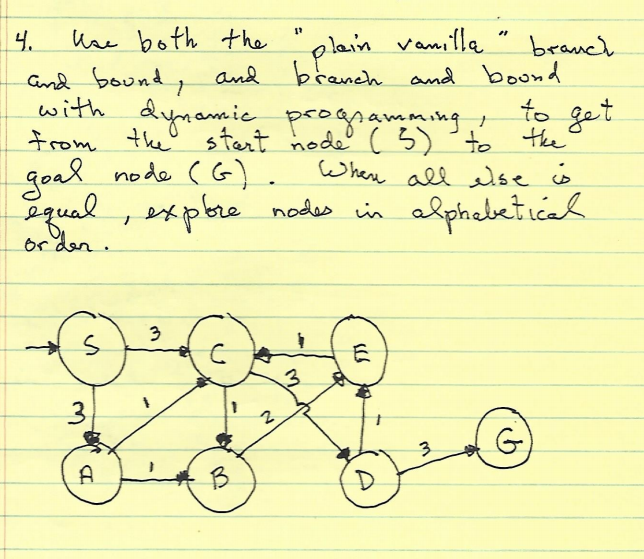 4. Use both the "plain vanilla" branch
and bound, and branch and bound
with dynamic programming, to get
from the start node (S) to the
goal node (G). When all else is
equal, explore nodes in alphabetical
order.
S 3 C 1 E
3 1 1 3 2 1 3 G
A 1 B D